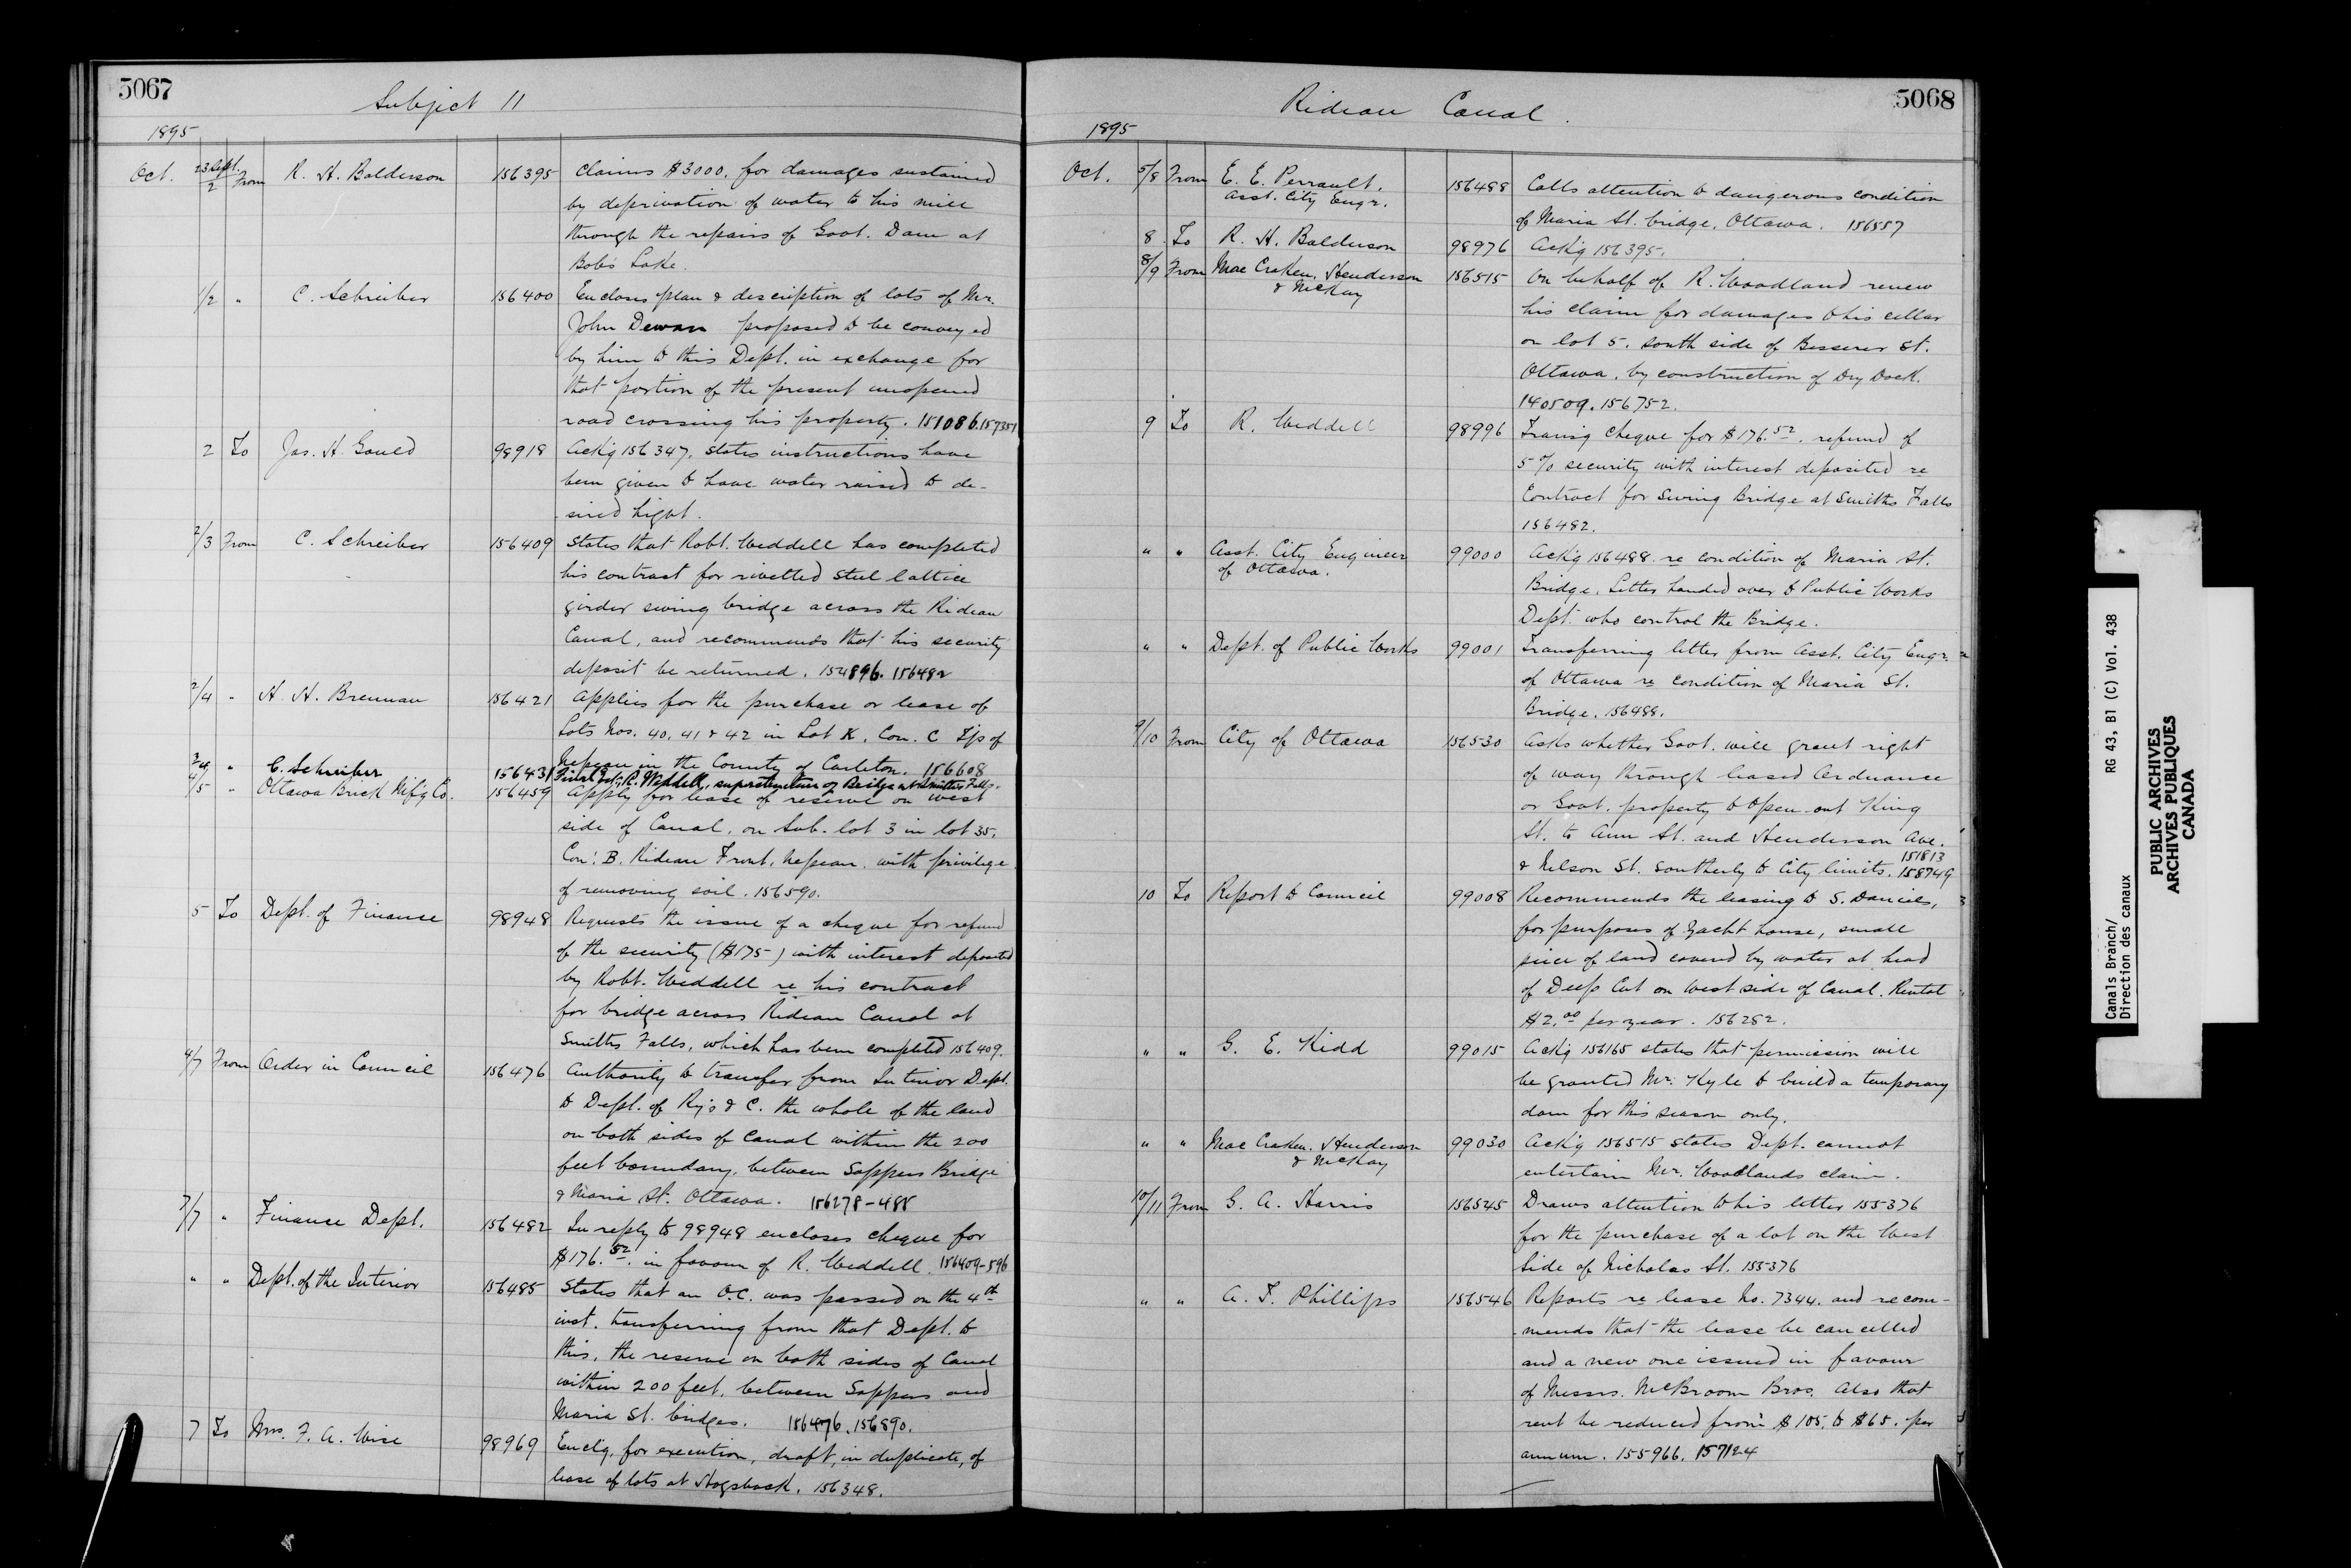 5067
Subject 11
1895
Oct. 23 Sept./2 From R. H. Balderson 156395 Claims $3000, for damages sustained
by deprivation of water to his mill
through the repairs of Govt. Dam at
Bob's Lake.
1/2 " C. Schreiber 156400 Encloses plan & description of lots of Mr.
John Dewan proposed to be conveyed
by him to this Dept. in exchange for
that portion of the present unopened
road crossing his property. 151086.157351
2 To Jas. H. Gould 98918 Ackg 156347, states instructions have
been given to have water raised to de-
sired hight.
2/3 From C. Schreiber 156409 States that Robt. Weddell has completed
his contract for rivetted steel lattice
girder swing bridge across the Rideau
Canal, and recommends that his security
deposit be returned. 154896. 156482
2/4 " H. H. Brennan 156421 Applies for the purchase or lease of
Lots Nos. 40, 41 & 42 in Lot K, Con. C Tp of
Nepean in the County of Carleton. 156608
3/4 " C. Schreiber 156431 Final Est. R. Weddell, superstructure of Bridge at Smiths Falls.
4/5 " Ottawa Brick Mf'g Co. 156459 Apply for lease of reserve on west
side of Canal, on Sub. lot 3 in lot 35,
Con: B. Rideau Front, Nepean. with privilege
of removing soil. 156590.
5 To Dept. of Finance 98948 Requests the issue of a cheque for refund
of the security ($175-) with interest deposited
by Robt. Weddell re his contract
for bridge across Rideau Canal at
Smiths Falls, which has been completed 156409.
4/7 From Order in Council 156476 Authority to transfer from Interior Dept.
to Dept. of Ry's & C. the whole of the land
on both sides of Canal within the 200
feet boundary, between Sappers Bridge
& Maria St. Ottawa. 156278-485
7/7 " Finance Dept. 156482 In reply to 98948 encloses cheque for
$176.52 in favour of R. Weddell. 156409-596
" " Dept. of the Interior 156485 States that an O.C. was passed on the 4th
inst. transferring from that Dept. to
this, the reserve on both sides of Canal
within 200 feet, between Sappers and
Maria St. bridges. 156476.156890.
7 To Mrs. F. A. Wise 98969 Enclg, for execution, draft, in duplicate, of
lease of lots at Hogsback. 156348.
5068
Rideau Canal.
1895
Oct. 5/8 From E. E. Perrault. 156488 Calls attention to dangerous condition
Asst. City Engr.
of Maria St. bridge, Ottawa. 156557
8 To R. H. Balderson 98976 Ackg 156395.
8/9 From Mac Craken, Henderson 156515 On behalf of R. Woodland renew
& McKay
his claim for damages to his cellar
on lot 5. south side of Besserer St.
Ottawa, by construction of Dry Dock.
140509. 156752.
9 To R. Weddell 98996 Transg cheque for $176.52. refund of
5% security with interest deposited re
Contract for Swing Bridge at Smiths Falls
156482.
" " Asst. City Engineer 99000 Ackg 156488. re condition of Maria St.
of Ottawa.
Bridge. Letter handed over to Public Works
Dept. who control the Bridge.
" " Dept. of Public Works 99001 Transferring letter from Asst. City Engr.
of Ottawa re condition of Maria St.
Bridge. 156488.
9/10 From City of Ottawa 156530 Asks whether Govt. will grant right
of way through leased Ordnance
or Govt. property to open out King
St. to Ann St. and Henderson Ave.
& Nelson St. Southerly to City limits. 151813 158749
10 To Report to Council 99008 Recommends the leasing to S. Daniels,
for purposes of Yacht house, small
piece of land covered by water at head
of Deep Cut on West side of Canal. Rental
$2.00 per year. 156282.
" " G. E. Kidd 99015 Ackg 156165 states that permission will
be granted Mr. Kyle to build a temporary
dam for this season only.
" " Mac Craken, Henderson 99030 Ackg 156515 states Dept. cannot
& McKay
entertain Mr. Woodlands claim.
10/11 From G. A. Harris 156545 Draws attention to his letter 155376
for the purchase of a lot on the West
Side of Nicholas St. 155376
" " A. T. Phillips 156546 Reports re lease No. 7344. and recom-
mends that the lease be cancelled
and a new one issued in favour
of Messrs. McBroom Bros. Also that
rent be reduced from $105. to $65. per
annum. 155966. 157124
Canals Branch/ RG 43, B1 (C) Vol. 438
Direction des canaux
PUBLIC ARCHIVES
ARCHIVES PUBLIQUES
CANADA